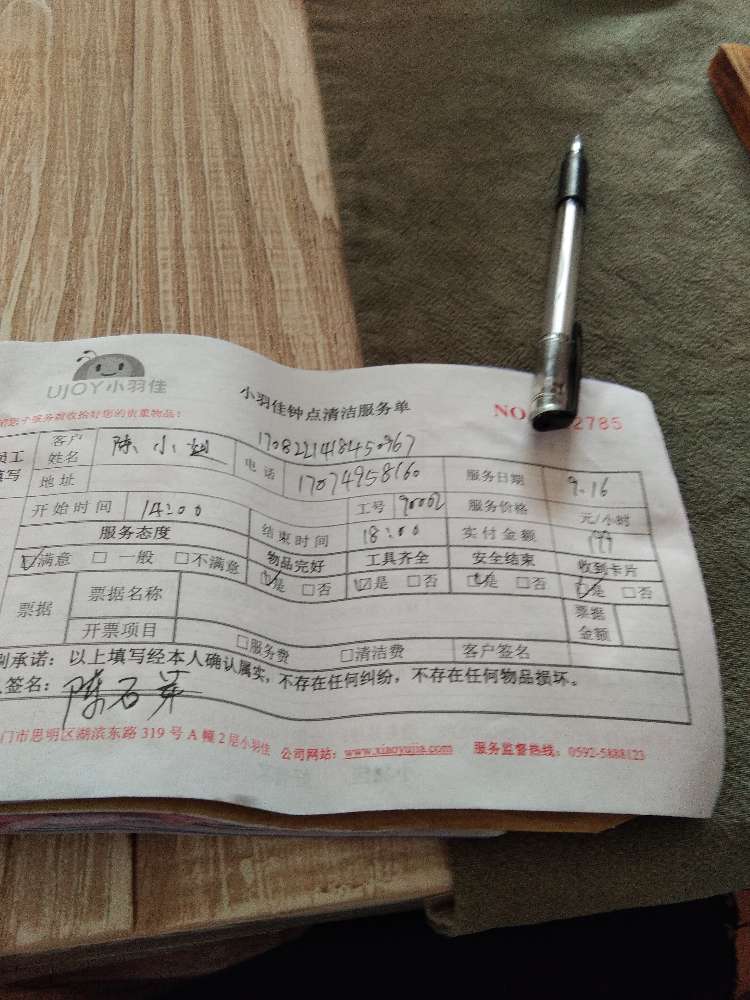 UJOY小羽佳
小羽佳钟点清洁服务单
NO. 2785
务数收拾好您的贵重物品:
员工
填写
客户
姓名
陈小
1708221418450367
地址
电话
17074958160
服务日期
9.16
开始时间
14:00
工号
90002
服务价格
元/小时
服务态度
结束时间
18:00
实付金额
满意 □ 一般 □不满意
物品完好
工具齐全
安全结束
收到卡片
是 □否
是 □否
是 □否
是 □否
票据
票据名称
票据
金额
开票项目
□服务费
□清洁费
客户签名
承诺:以上填写经本人确认属实,不存在任何纠纷,不存在任何物品损坏。
签名:陈
门市思明区湖滨东路 319 号 A 幢 2 层小羽佳 公司网站:www.xiaoyujia.com 服务监督热线:0592-5888123